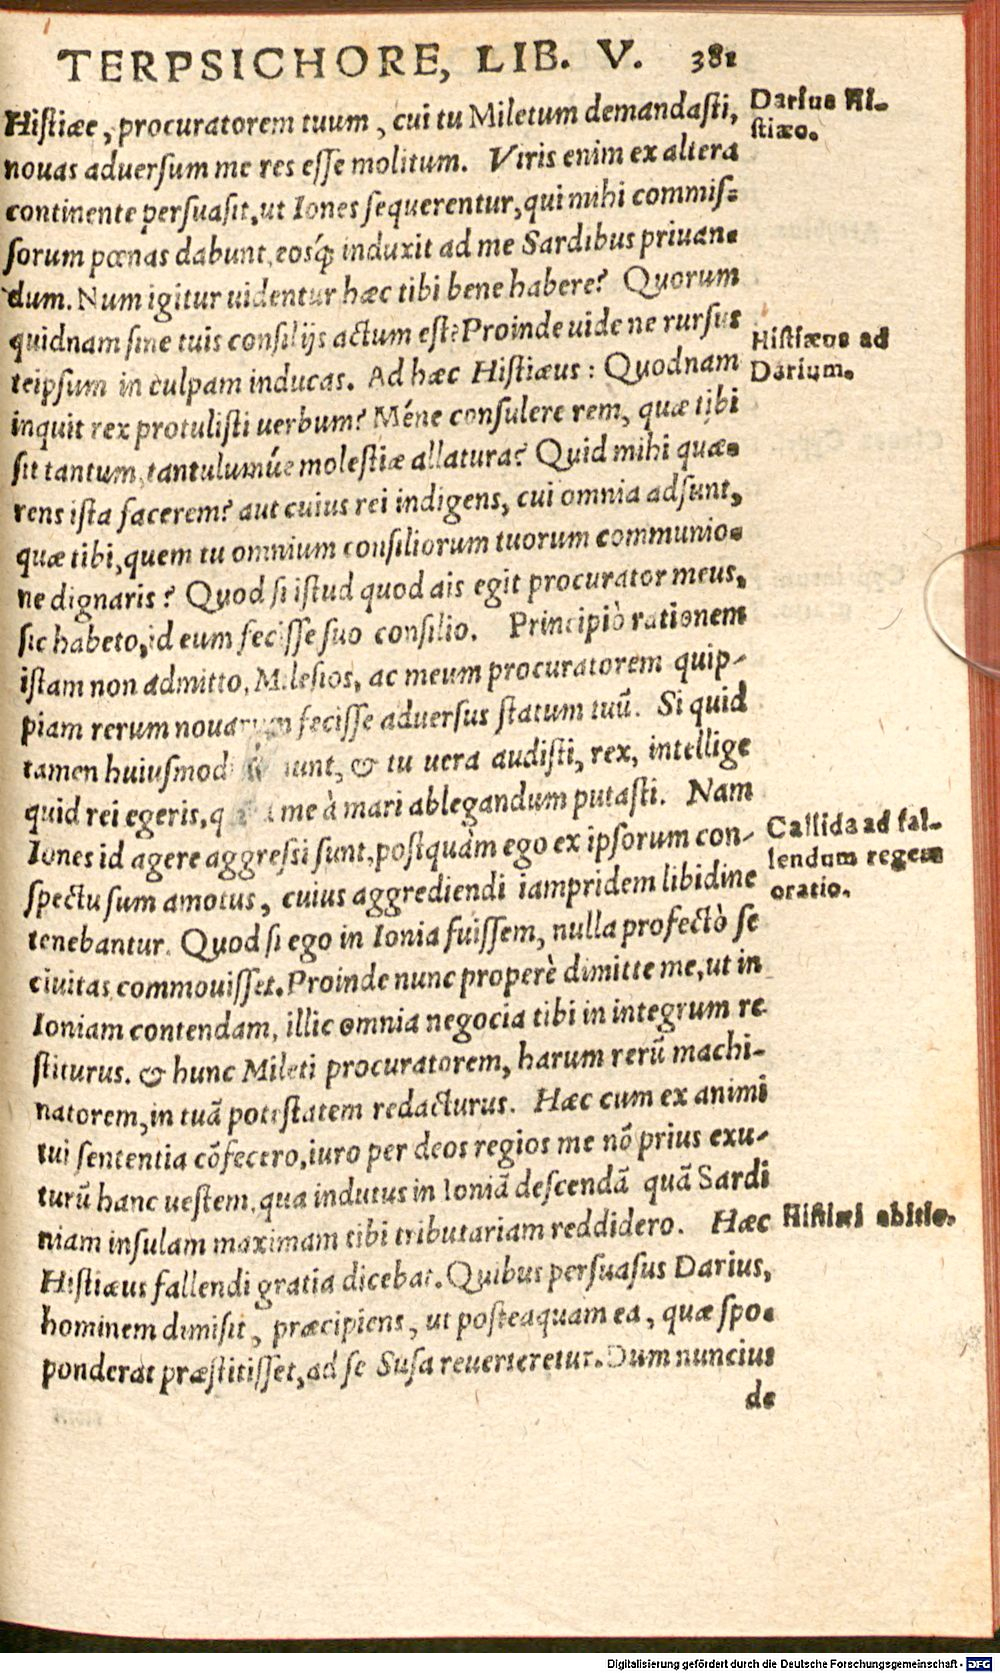 TERPSICHORE, LIB. V. 381
Histiæe, procuratorem tuum, cui tu Miletum demandasti,
Darius Hi-
stiæo.
nouas aduersum me res esse molitum. Viris enim ex altera
continente persuasit, ut Iones sequerentur, qui mihi commis-
sorum pœnas dabunt, eosq́; induxit ad me Sardibus priuan-
dum. Num igitur uidentur hæc tibi bene habere? Quorum
quidnam sine tuis consilijs actum est? Proinde uide ne rursus
Histiæus ad
Darium.
teipsum in culpam inducas. Ad hæc Histiæus: Quodnam
inquit rex protulisti uerbum? Méne consulere rem, quæ tibi
sit tantum, tantulumúe molestiæ allatura? Quid mihi quæ-
rens ista facerem? aut cuius rei indigens, cui omnia adsunt,
quæ tibi, quem tu omnium consiliorum tuorum communio-
ne dignaris? Quod si istud quod ais egit procurator meus,
sic habeto, id eum fecisse suo consilio. Principiò rationem
istam non admitto, Milesios, ac meum procuratorem quip-
piam rerum nouarum fecisse aduersus statum tuū. Si quid
tamen huiusmodi unt, & tu uera audisti, rex, intellige
quid rei egeris, q me à mari ablegandum putasti. Nam
Iones id agere aggressi sunt, postquàm ego ex ipsorum con-
Callida ad fal-
lendum regem
oratio.
spectu sum amotus, cuius aggrediendi iampridem libidine
tenebantur. Quod si ego in Ionia fuissem, nulla profectò se
ciuitas commouisset. Proinde nunc properè dimitte me, ut in
Ioniam contendam, illic omnia negocia tibi in integrum re-
stiturus. & hunc Mileti procuratorem, harum rerū machi-
natorem, in tuā potestatem redacturus. Hæc cum ex animi
tui sententia cōfecero, iuro per deos regios me nō prius exu-
turū hanc uestem, qua indutus in Ioniā descendā quā Sardi
niam insulam maximam tibi tributariam reddidero. Hæc
Histiæi abitio.
Histiæus fallendi gratia dicebat. Quibus persuasus Darius,
hominem dimisit, præcipiens, ut posteaquam ea, quæ spo-
ponderat præstitisset, ad se Susa reuerteretur. Dum nuncius
de
Digitalisierung gefördert durch die Deutsche Forschungsgemeinschaft - DFG